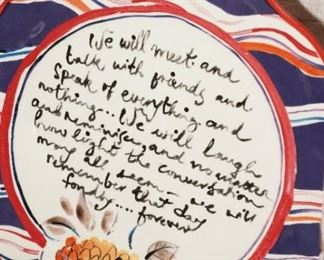 We will meet and
talk with friends and
speak of everything and
nothing... We will laugh
and reminisce, and no matter
how light the conversation
may all seem — we will
remember that day
fondly.... forever